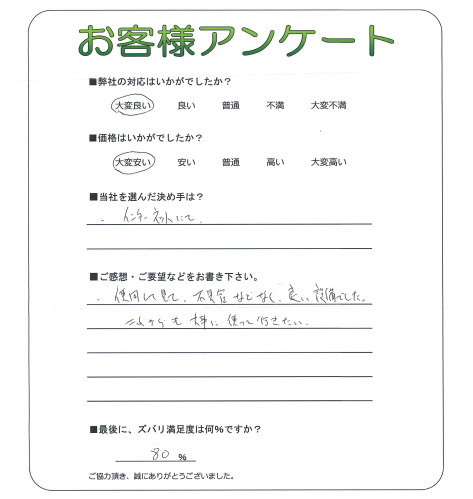 お客様アンケート
■弊社の対応はいかがでしたか？
大変良い 良い 普通 不満 大変不満
■価格はいかがでしたか？
大変安い 安い 普通 高い 大変高い
■当社を選んだ決め手は？
・インターネットにて
■ご感想・ご要望などをお書き下さい。
・使用して見て、不具合などなく、良い設備でした。
これからも大事に使って行きたい。
■最後に、ズバリ満足度は何％ですか？
80 %
ご協力頂き、誠にありがとうございました。